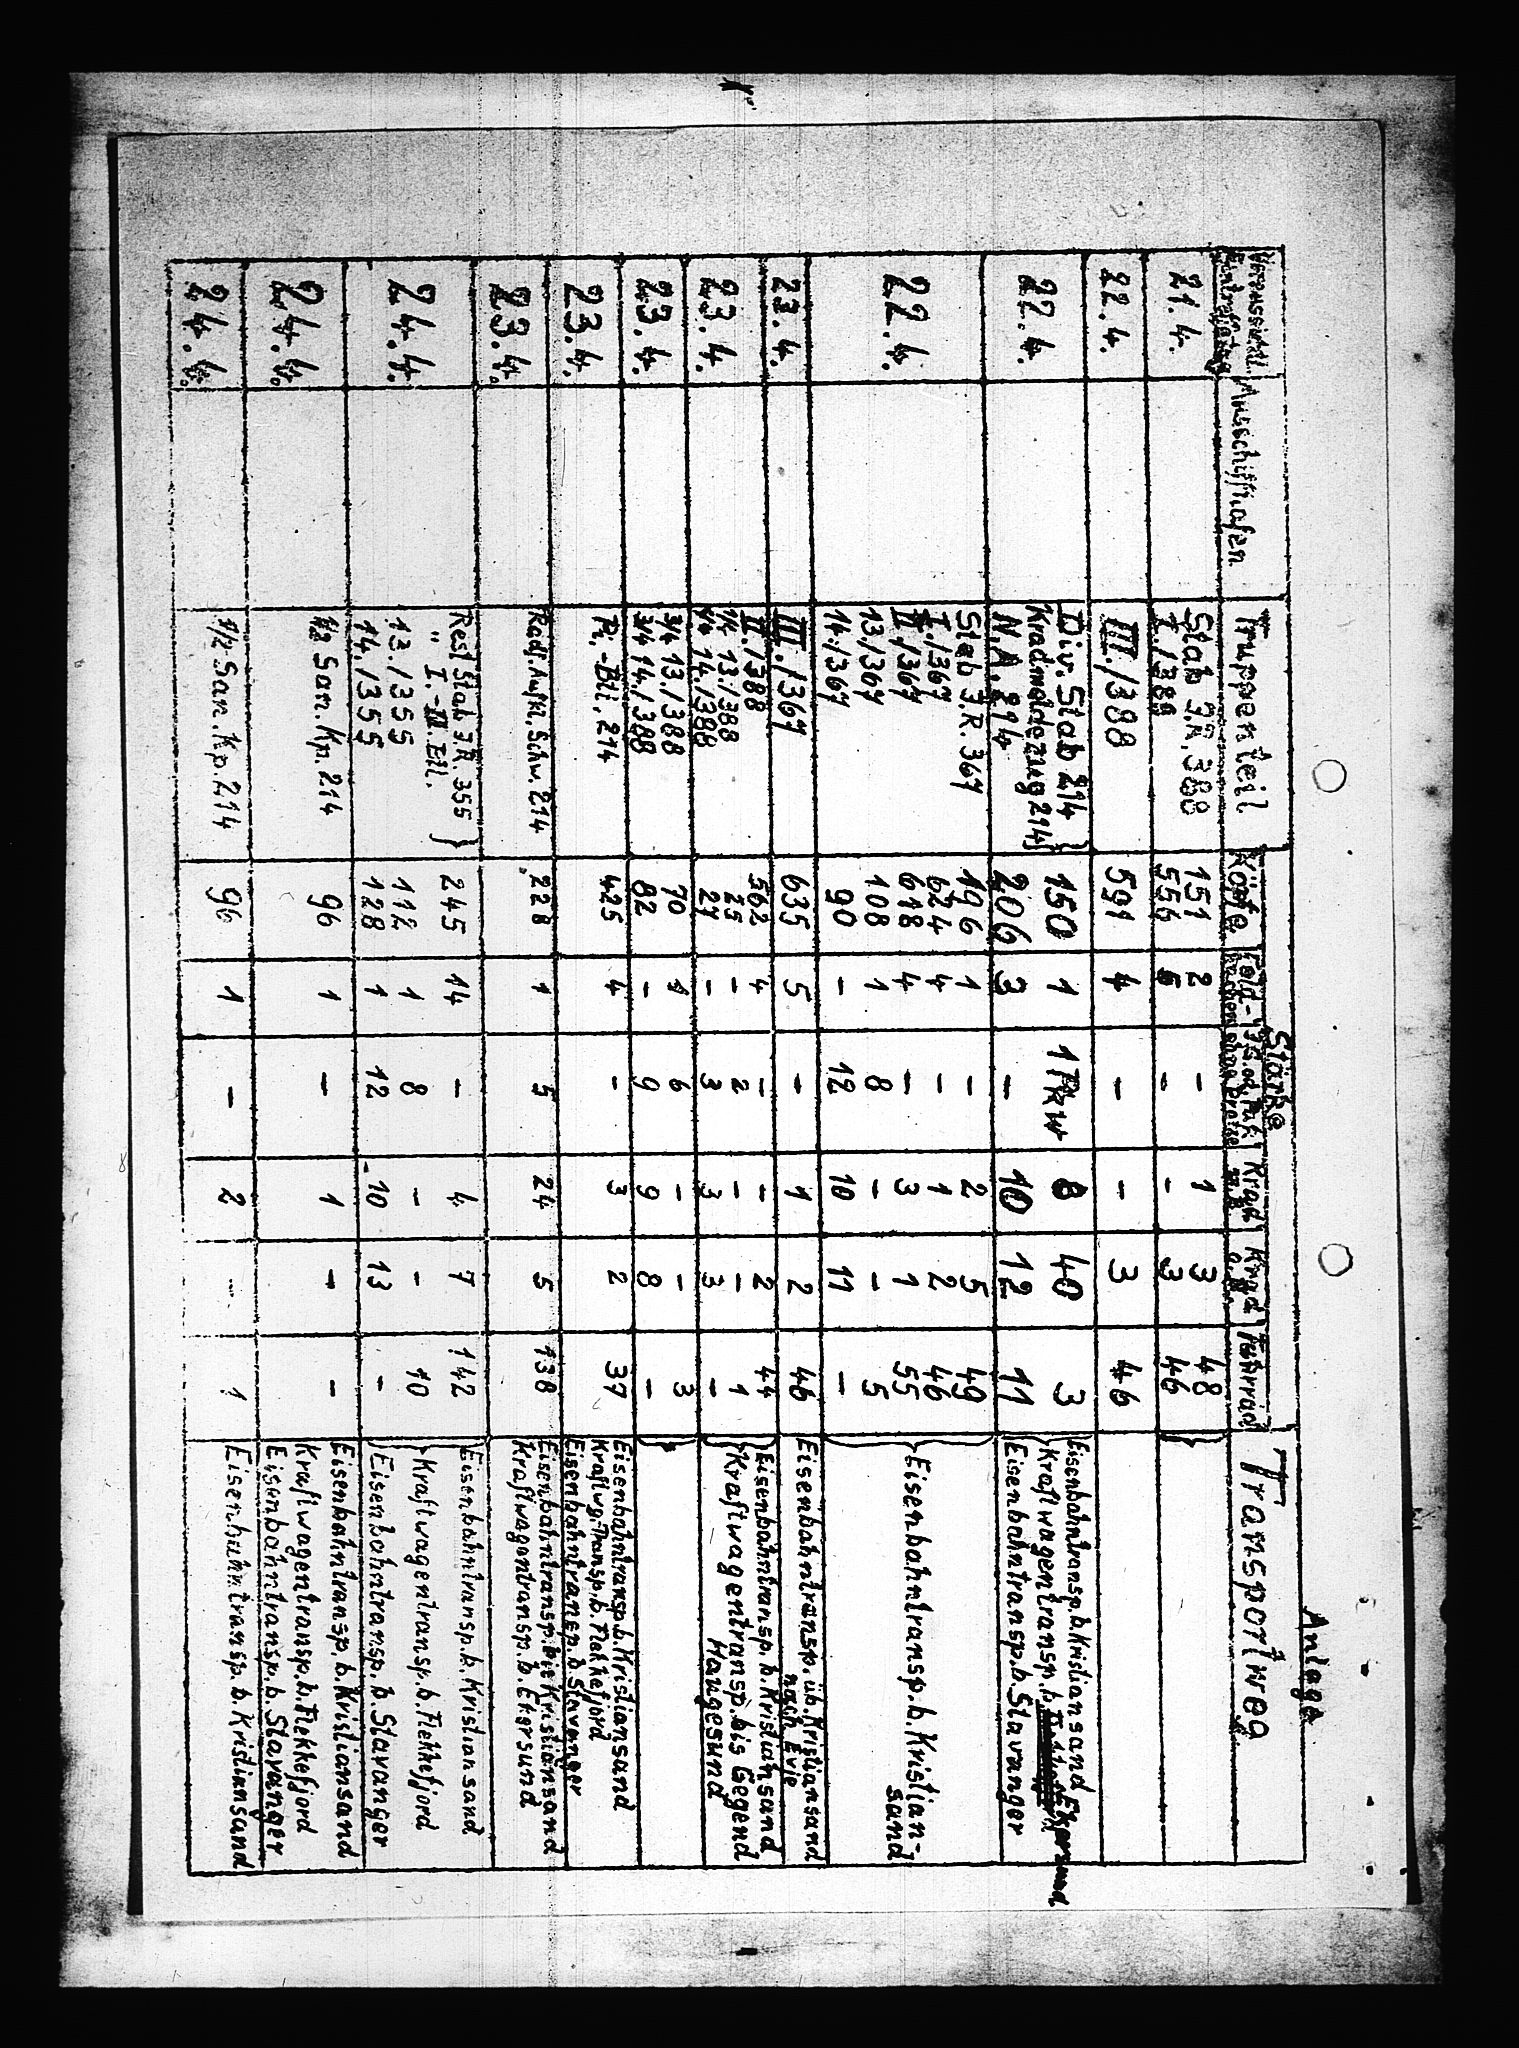 Anlage
Voraussichtl. Eintreffetag | Ausschiffhafen | Truppenteil | Stärke | Transportweg
Köpfe | Feld- | Pfe. od. Pak | Krad m.B. | Krad o.B. | Fahrrad
21.4. | Stab J.R. 388 | 151 | 2 | – | 1 | 3 | 48
I./388 | 556 | 5 | – | – | 3 | 46
22.4. | III./388 | 591 | 4 | – | – | 3 | 46
22.4. | Div. Stab 214 | 150 | 1 | 1 Pkw | 8 | 40 | 3 | Eisenbahntransp. b. Kristiansand
Kradmeldezug 214 | Kraftwagentransp. b. Ekersund
N.A. 214 | 206 | 3 | – | 10 | 12 | 11 | Eisenbahntransp. b. Stavanger
22.4. | Stab J.R. 367 | 196 | 1 | – | 2 | 5 | 49 | Eisenbahntransp. b. Kristian-
sand
I./367 | 624 | 4 | – | 1 | 2 | 46
II./367 | 618 | 4 | – | 3 | 1 | 55
13./367 | 108 | 1 | 8 | – | – | 5
14./367 | 90 | – | 12 | 10 | 11 | –
23.4. | III./367 | 635 | 5 | – | 1 | 2 | 46 | Eisenbahntransp. üb. Kristiansand
nach Evje
23.4. | II./388 | 562 | 4 | – | – | 2 | 44 | Eisenbahntransp. b. Kristiansand
1/4 13./388 | 25 | – | 2 | – | – | 1 | Kraftwagentransp. bis Gegend
1/4 14./388 | 27 | – | 3 | 3 | 3 | – | Haugesund
23.4. | 3/4 13./388 | 70 | 1 | 6 | – | – | 3
3/4 14./388 | 82 | – | 9 | 9 | 8 | –
23.4. | Pi.-Btl. 214 | 425 | 4 | – | 3 | 2 | 37 | Eisenbahntransp. b. Kristiansand
Kraftwg.-Transp. b. Flekkefjord
Eisenbahntransp. b. Stavanger
23.4. | Radf. Aufkl. Schw. 214 | 228 | 1 | 5 | 24 | 5 | 138 | Eisenbahntransp. bis Kristiansand
Kraftwagentransp. b. Ekersund
24.4. | Rest Stab J.R. 355 | 245 | 14 | – | 4 | 7 | 142 | Eisenbahntransp. b. Kristiansand
" I.-III. Btl.
13./355 | 112 | 1 | 8 | – | – | 10 | Kraftwagentransp. b. Flekkefjord
14./355 | 128 | 1 | 12 | 10 | 13 | – | Eisenbahntransp. b. Stavanger
24.4. | 1/2 San. Kp. 214 | 96 | 1 | – | 1 | – | – | Eisenbahntransp. b. Kristiansand
Kraftwagentransp. b. Flekkefjord
Eisenbahntransp. b. Stavanger
24.4. | 1/2 San. Kp. 214 | 96 | 1 | – | 2 | – | 1 | Eisenbahntransp. b. Kristiansand